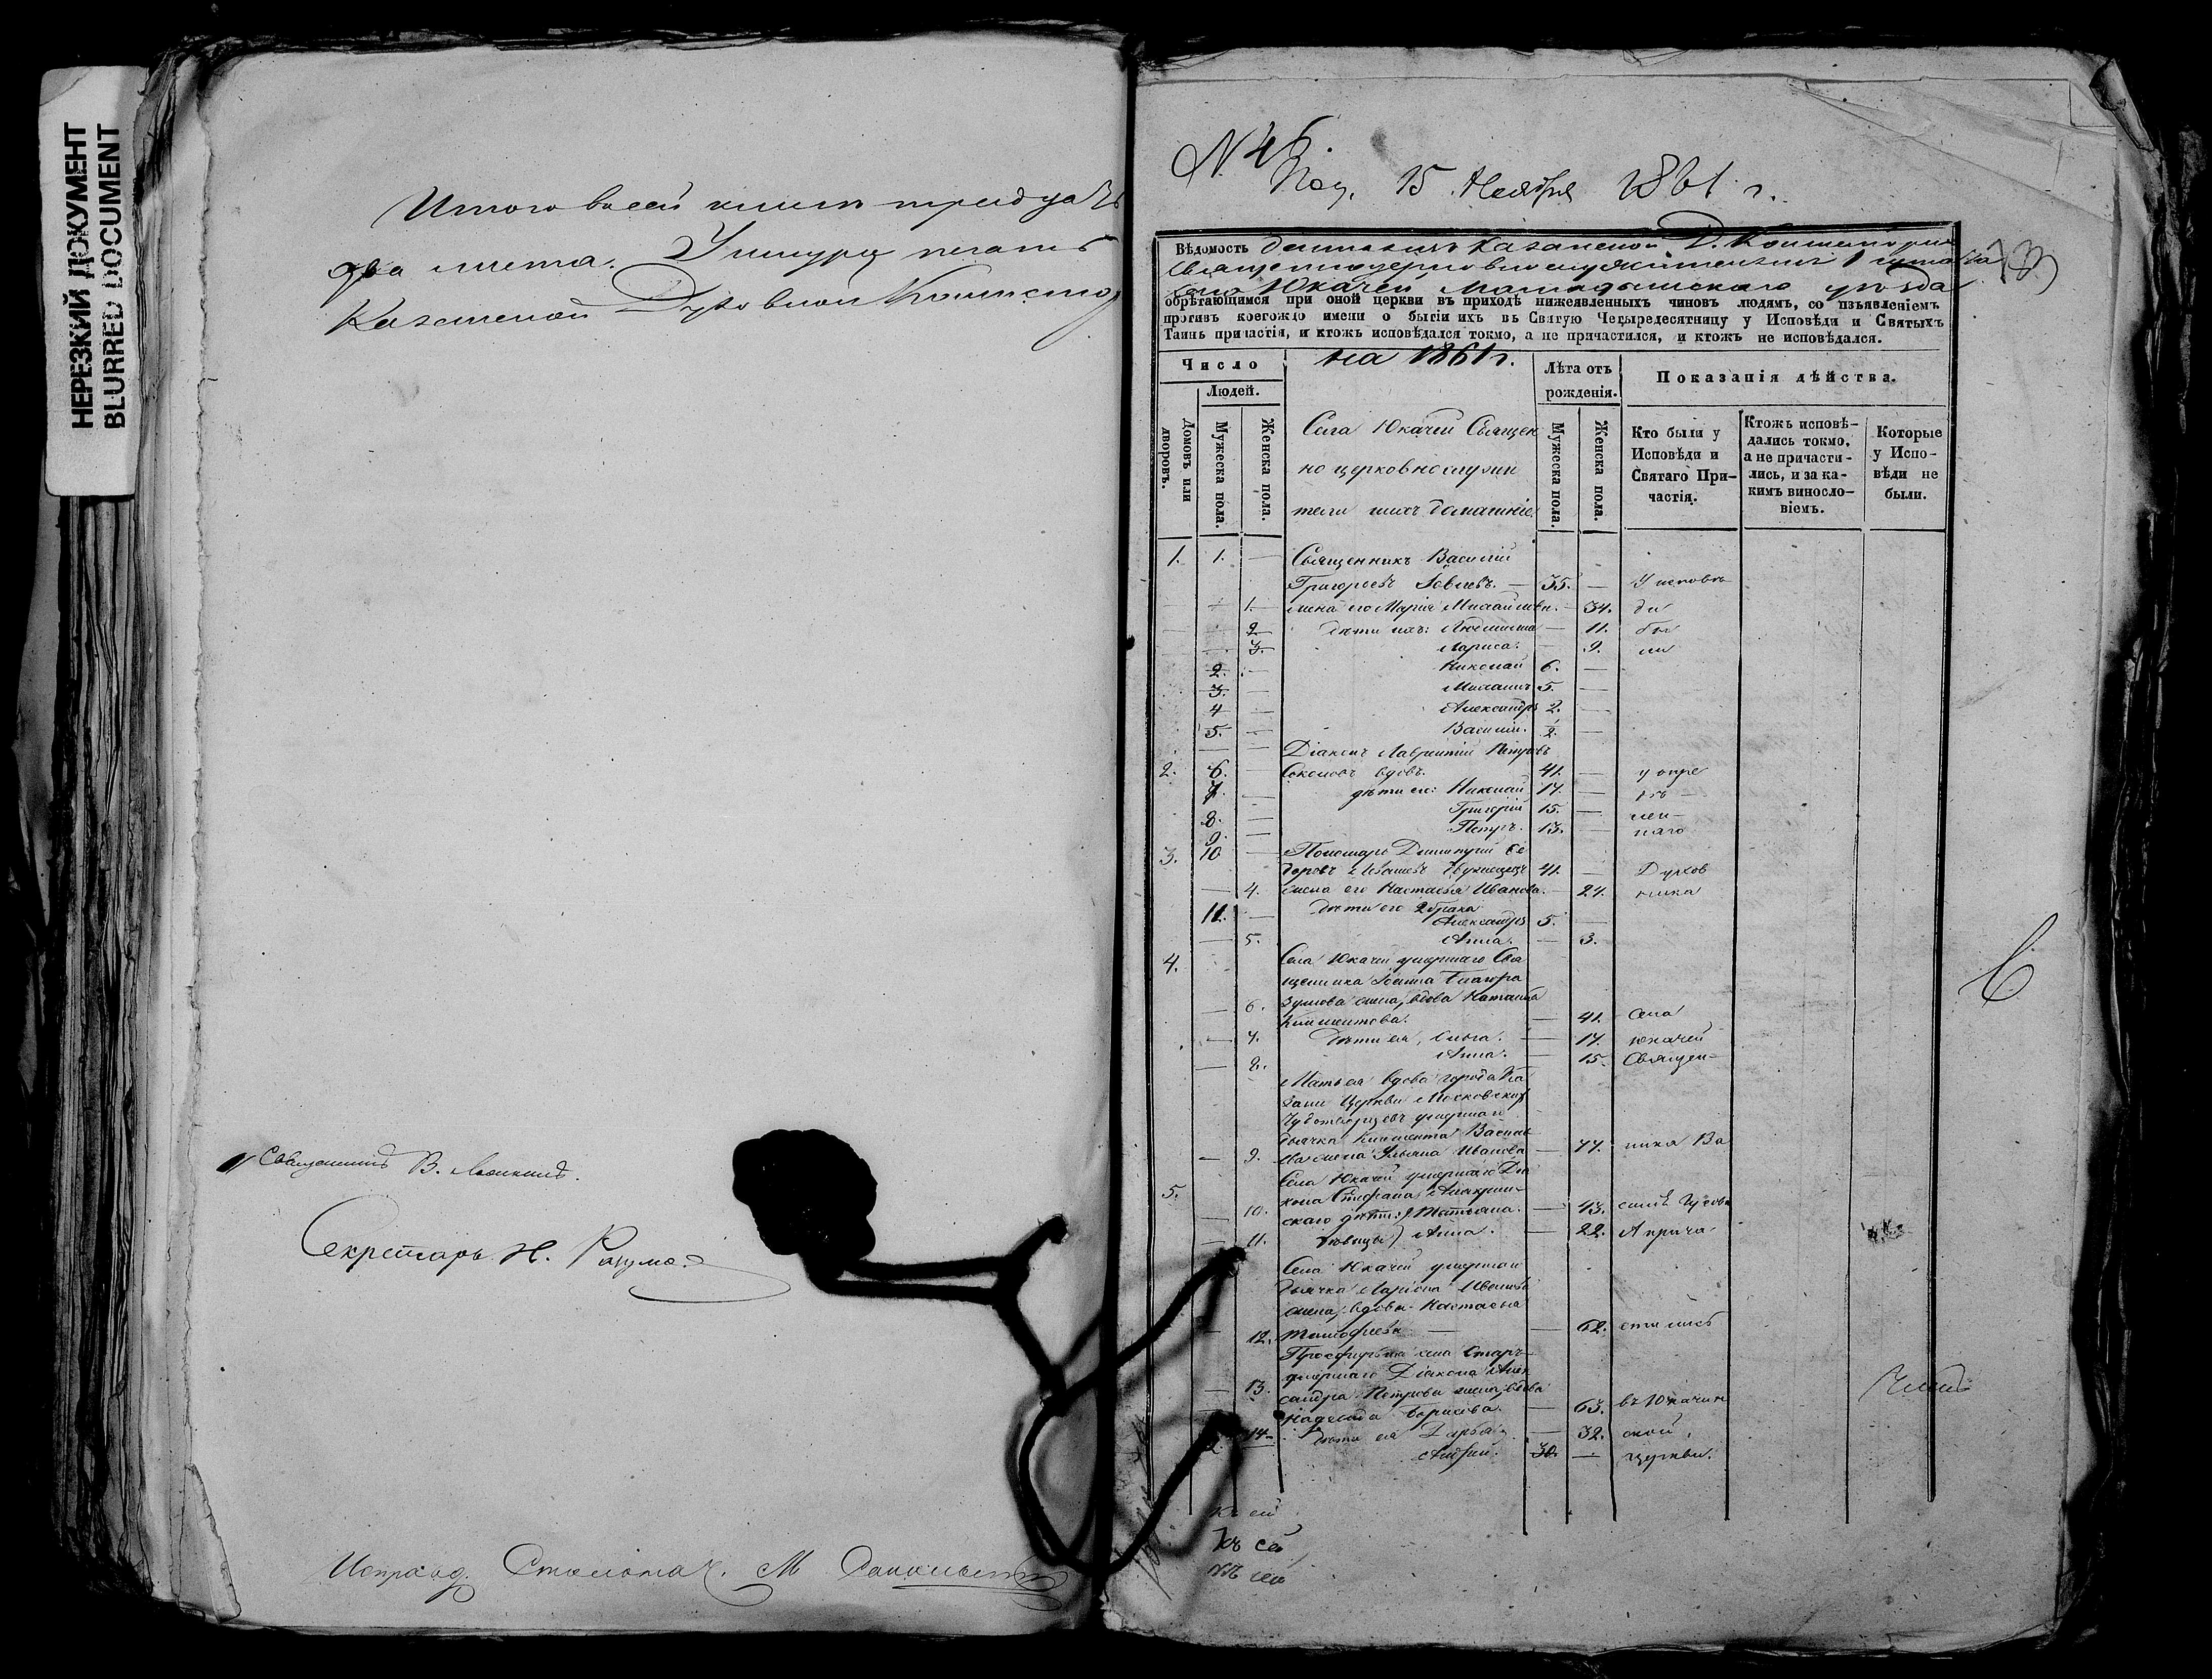 НЕРЕЗКИЙ ДОКУМЕНТ
BLURRED DOCUMENT
Итого в сей книге тридцать
два листа. У шнура печать
Казанской Духовной Консистор
Священникъ В.
Секретарь Н. Разумо
Исправ. Столонач. М
N 46.
Пол. 15 Ноября 1861 г.
Вѣдомость Казанской Д. Консисторіи
священноцерковнослужителями
села Юкачей Мамадышскаго уѣзда
обрѣтающимся при оной церкви въ приходѣ нижеявленныхъ чиновъ людямъ, со изъявленіемъ
противъ коегождо имени о бытіи ихъ въ Святую Четыредесятницу у Исповѣди и Святыхъ
Таинъ причастія, и ктожъ исповѣдался токмо, а не причастился, и ктожъ не исповѣдался.
Число
на 1861 г.
Лѣта отъ рожденія.
Показанія дѣйства.
Людей.
Домовъ или дворовъ.
Мужеска пола.
Женска пола.
Села Юкачей Священ
но церковнослужи
тели и ихъ домашніе
Мужеска пола.
Женска пола.
Кто были у Исповѣди и Святаго Причастія.
Ктожъ исповѣдались токмо, а не причастились, и за какимъ винословіемъ.
Которые у Исповѣди не были.
1. 1. — Священникъ Василій
Григорьевъ — 35. — У исповѣ
1. жена его Марія Михайлова — 34. ди
2 дѣти ихъ: Людмила — 11. бы
3. Лариса. — 9. ли
2. — Николай 6. —
3. — Михаилъ 5. —
4 — Александръ 2. —
5. — Василій. ½. —
— — Діаконъ Лаврентій Петровъ
2. 6. — Соколовъ вдовъ. 41. — у опре
7. — дѣти его: Николай 17. — дѣ
8. — Григорій 15. — лен
9. — Петръ. 13. — наго
3. 10 — Пономарь Димитрій Ѳе
доровъ 41. — Духов
— 4. жена его Настасья Иванова. — 24. ника
11. — дѣти его 2 брака
Александръ 5. —
— 5. Анна. — 3.
4. Села Юкачей умершаго Свя
щенника Іоанна Благора
— 6. зумова жена, вдова Наталья
Климентова. — 41. села
— 7. дѣти ея, Ольга. — 17. Юкачей
— 8. Анна. — 15. Священ-
Мать ея вдова города Ка
зани Церкви Московскихъ
Чудотворцевъ умершаго
дьячка Климента Василь
— 9. ева жена Ульяна Иванова — 77. ника Ва
5. Села Юкачей умершаго Діа
кона Стефана
— 10. скаго дѣти: Татьяна. — 43. силія
— 11. дѣвицы) Анна. — 22. А прича
Села Юкачей умершаго
дьячка Ларіона
жена, вдова Настасья
12. Тимофеева — — 62. стились
Просфирня
умершаго Діакона Алек
— 13. сандра Петрова жена, вдова
Надежда Борисова. — 63. въ Юкачин
14 дѣти ея Дарья. — 32. ской
Андрей. 30. — церкви.
Къ сей
Къ сей
Къ сей